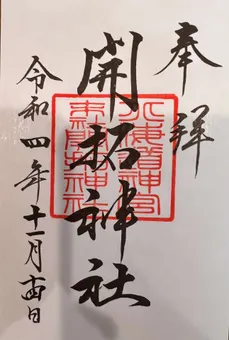 奉拝
開拓神社
北海道神宮
末社開拓神社
令和四年十一月十四日